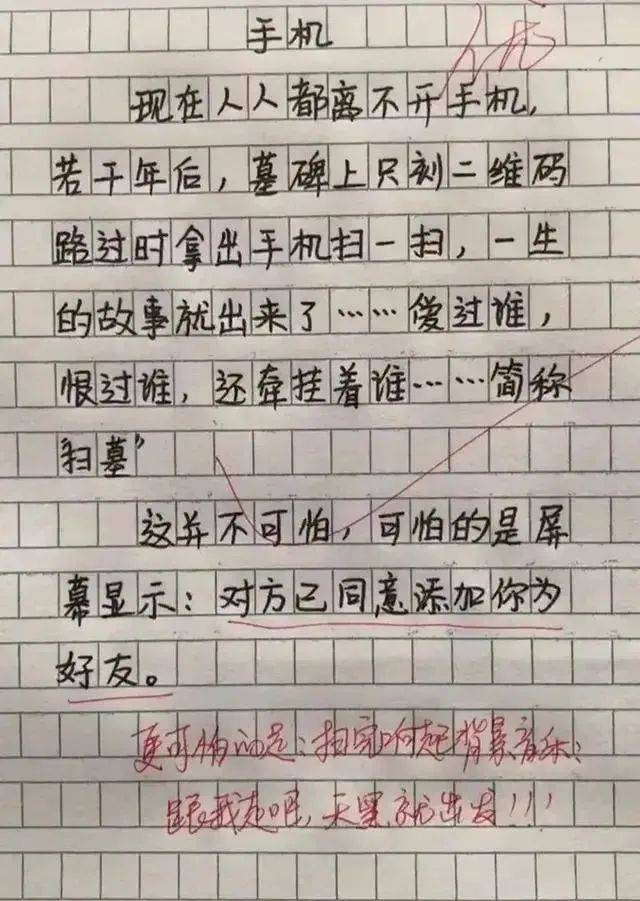 手机
优
现在人人都离不开手机，
若干年后，墓碑上只刻二维码
路过时拿出手机扫一扫，一生
的故事就出来了……爱过谁，
恨过谁，还牵挂着谁……简称
“扫墓”
这并不可怕，可怕的是屏
幕显示：对方已同意添加你为
好友。
更可怕的是：扫完响起背景音乐：
跟我走吧，天黑就出发！！！